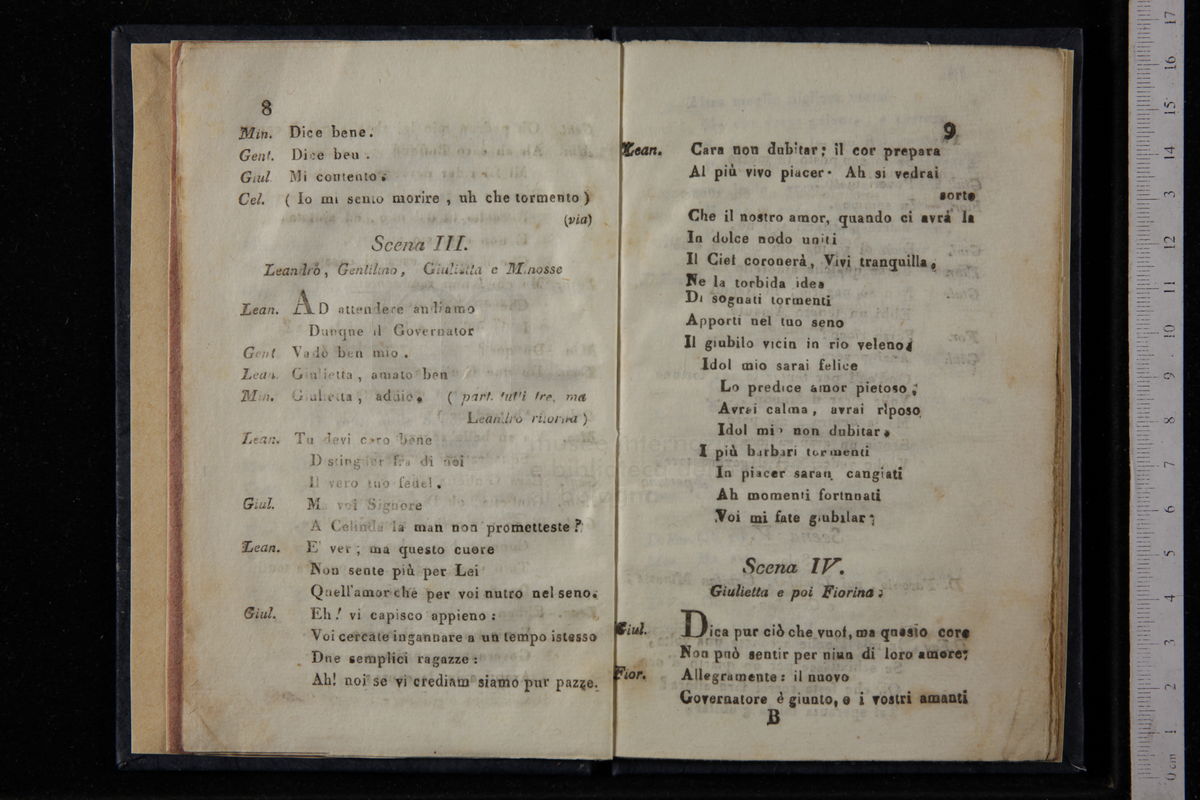 8
Min. Dice bene.
Gent. Dice ben .
Giul Mi contento.
Cel. ( Io mi sento morire , uh che tormento )
(via)
Scena III.
Leandro, Gentilino, Giulietta e Minosse
Lean. AD attendere andiamo
Dunque il Governator
Gent. Vado ben mio .
Lean. Giulietta, amato ben
Min. Giulietta, addio. ( part. tutti tre, ma
Leandro ritorna )
Lean. Tu devi caro bene
Distinguer fra di noi
Il vero tuo fedel.
Giul. Ma voi Signore
A Celinda la man non prometteste?
Lean. E' ver; ma questo cuore
Non sente più per Lei
Quell'amor che per voi nutro nel seno.
Giul. Eh! vi capisco appieno :
Voi cercate ingannare a un tempo istesso
Dne semplici ragazze :
Ah! noi se vi crediam siamo pur pazze.
9
Lean. Cara non dubitar; il cor prepara
Al più vivo piacer. Ah si vedrai
sorte
Che il nostro amor, quando ci avrà la
In dolce nodo uniti
Il Ciel coronerà, Vivi tranquilla,
Ne la torbida idea
Di sognati tormenti
Apporti nel tuo seno
Il giubilo vicin in rio veleno.
Idol mio sarai felice
Lo predice amor pietoso;
Avrai calma, avrai riposo
Idol mio non dubitar.
I più barbari tormenti
In piacer saran cangiati
Ah momenti fortnnati
Voi mi fate giubilar;
Scena IV.
Giulietta e poi Fiorina.
Giul. Dica pur ciò che vuol, ma questo core
Non può sentir per niun di loro amore;
Fior. Allegramente: il nuovo
Governatore è giunto, e i vostri amanti
B